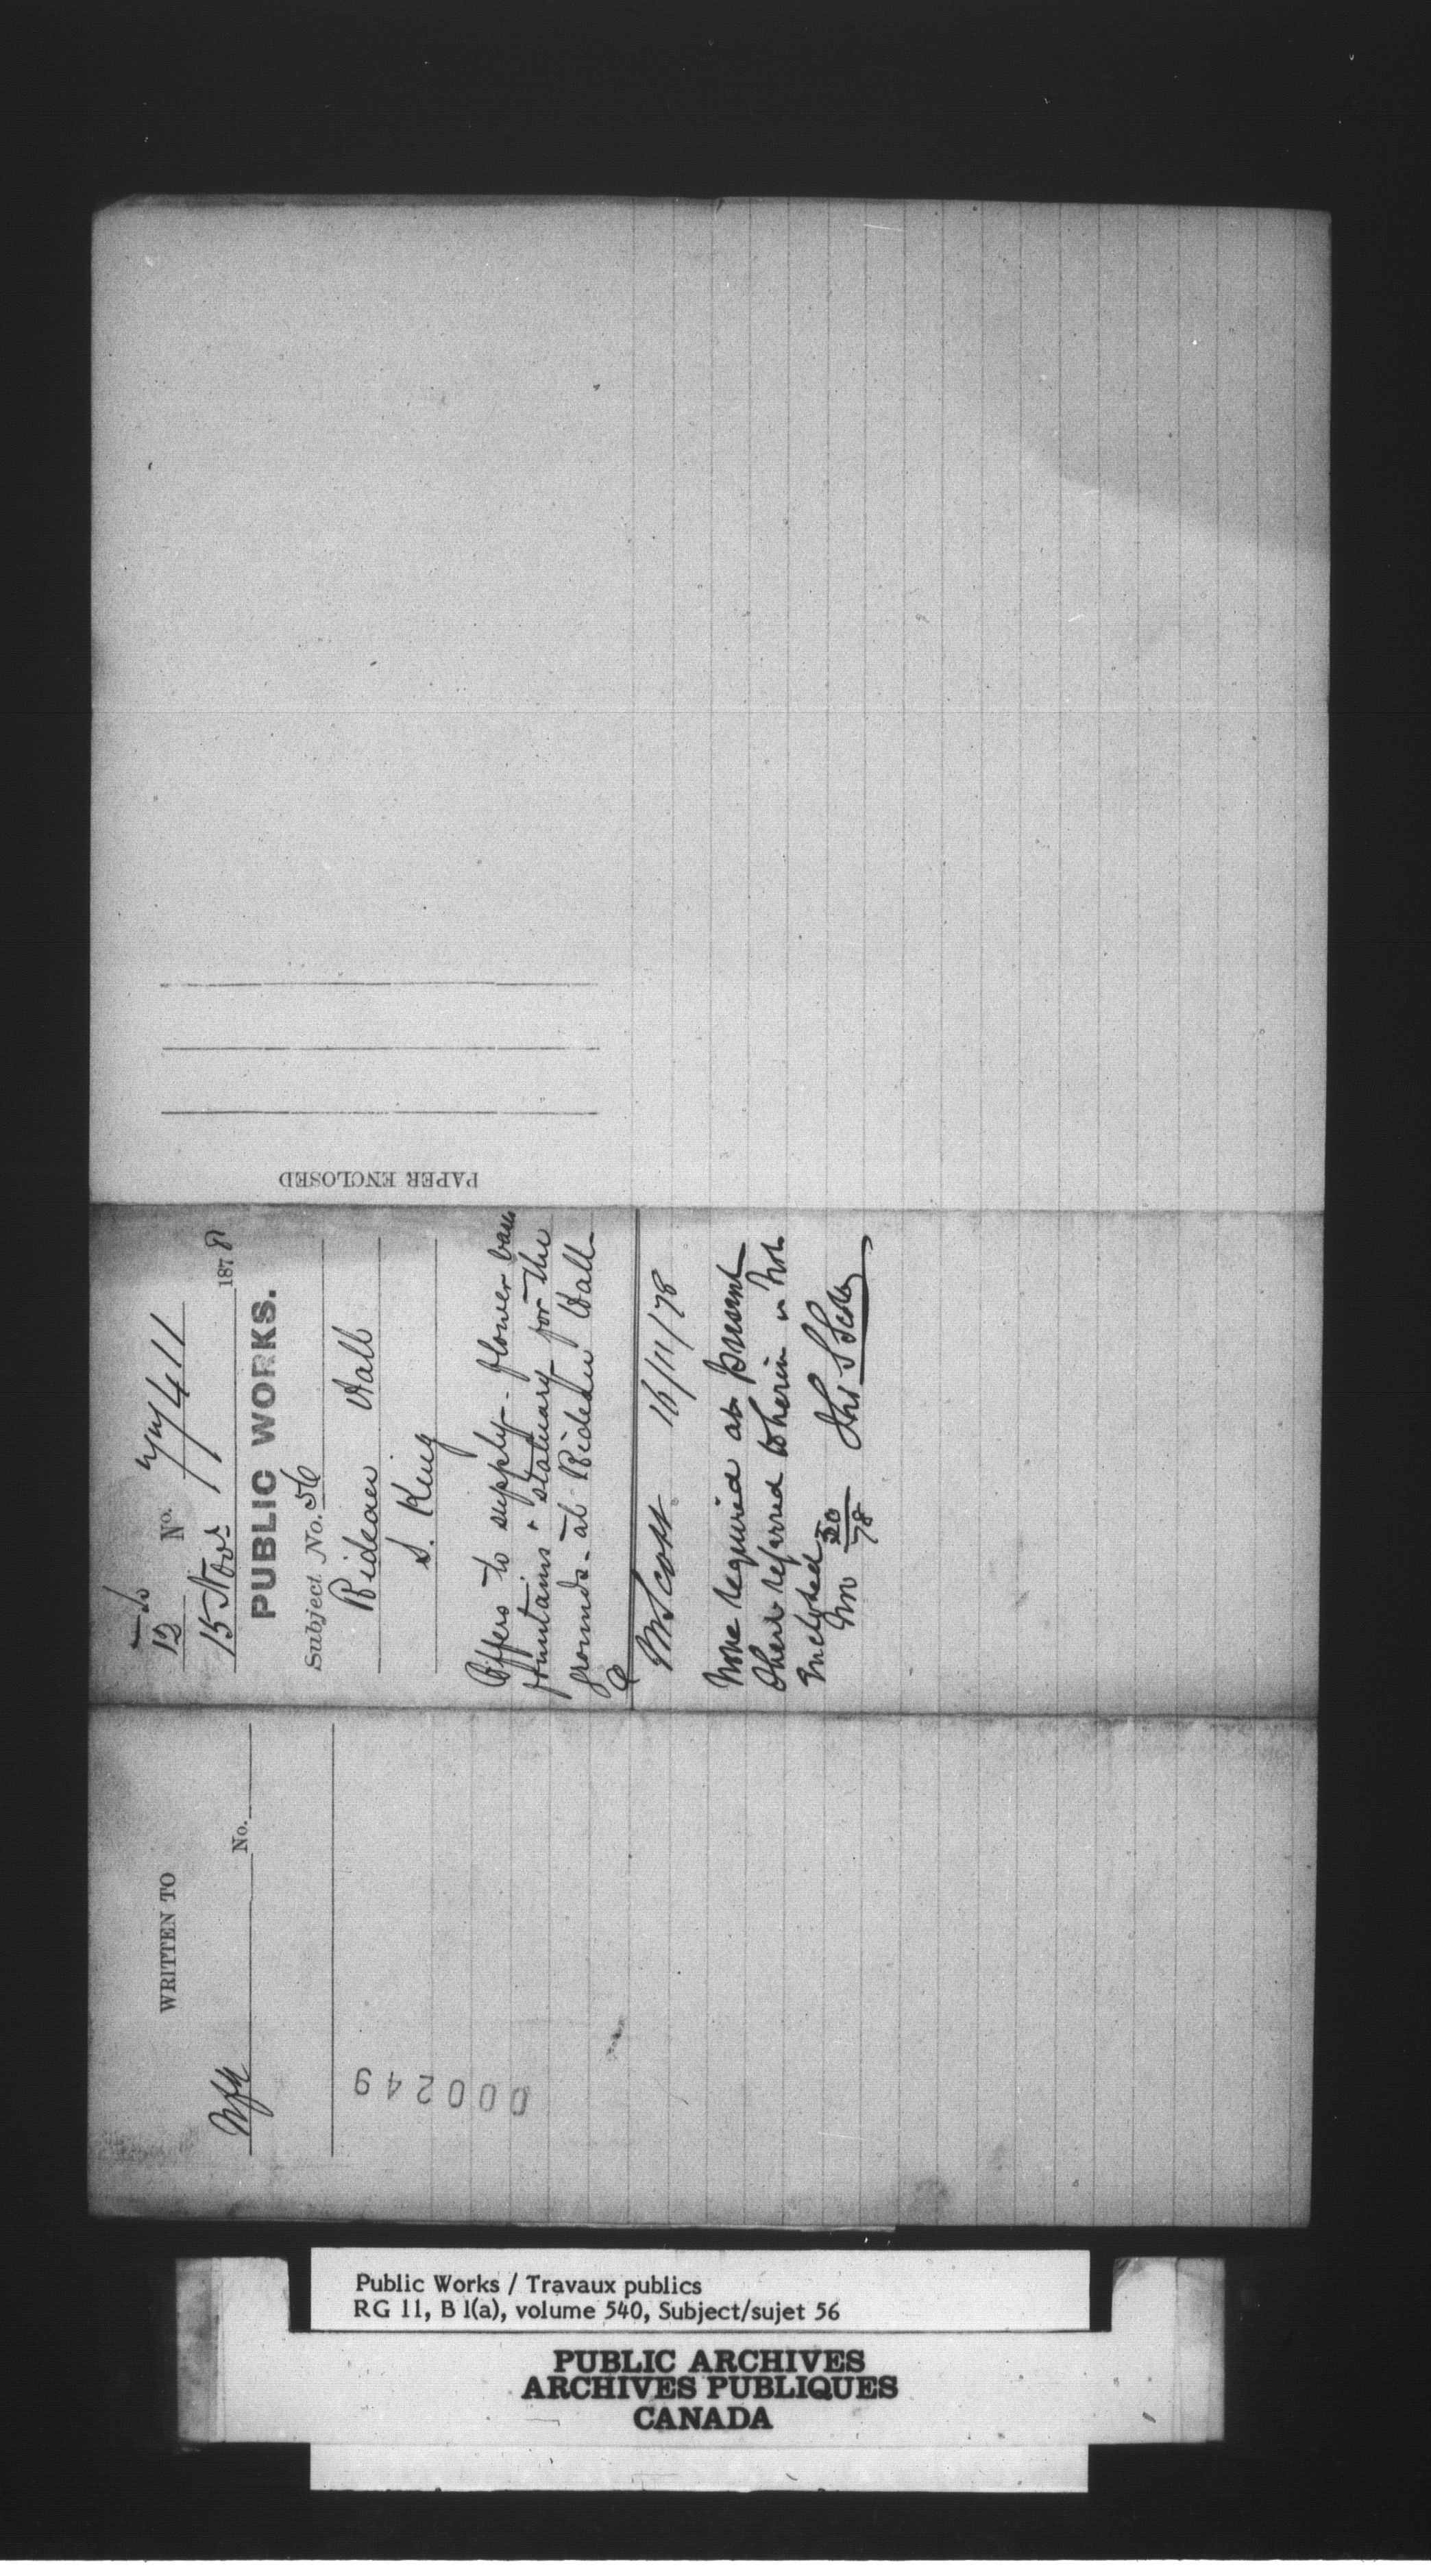 12 No. 77411
15 Nov: 1878
PUBLIC WORKS.
Subject No. 56
Rideau Hall
S. King
Offers to supply - flower vases
fountains & statuary for the
grounds - at Rideau Hall
Mr Scott 16/11/78
None required at present
sheet referred to herein is not
enclosed
20/78
PAPER ENCLOSED
WRITTEN TO
No.
000249
Public Works / Travaux publics
RG 11, B 1(a), volume 540, Subject/sujet 56
PUBLIC ARCHIVES
ARCHIVES PUBLIQUES
CANADA